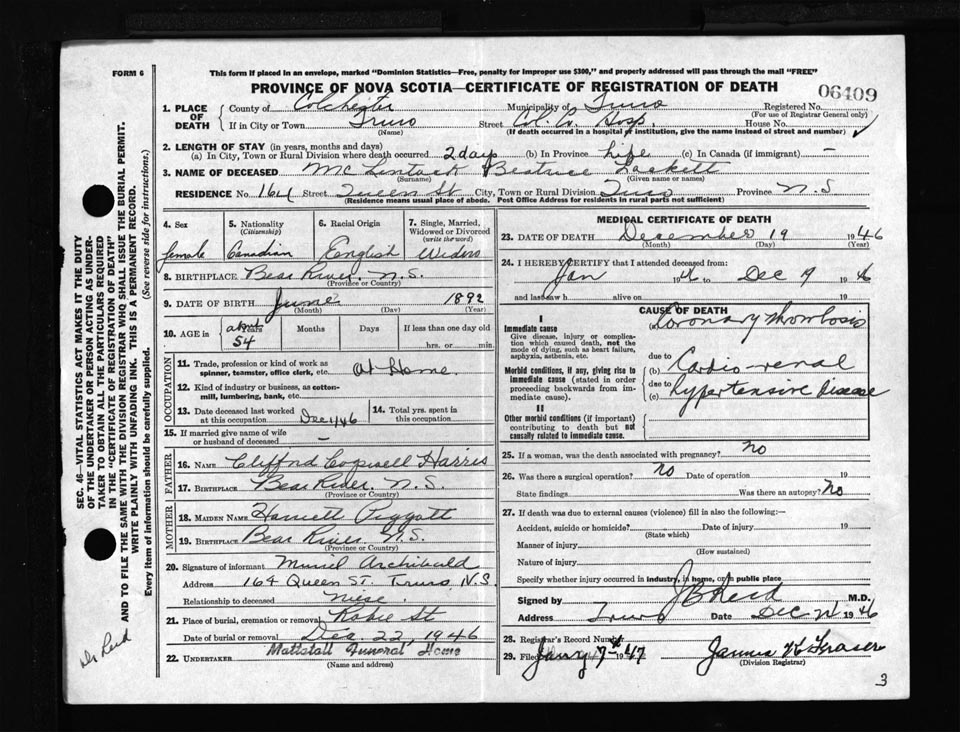 FORM 6
This form if placed in an envelope, marked "Dominion Statistics—Free, penalty for improper use $300," and properly addressed will pass through the mail "FREE"
PROVINCE OF NOVA SCOTIA—CERTIFICATE OF REGISTRATION OF DEATH
06409
1. PLACE OF DEATH
County of Colchester Municipality of Truro Registered No.
(For use of Registrar General only)
If in City or Town Truro Street Col. Co. Hosp. House No.
(Name) (If death occurred in a hospital or institution, give the name instead of street and number)
2. LENGTH OF STAY (in years, months and days)
(a) In City, Town or Rural Division where death occurred 2 days (b) In Province Life (c) In Canada (if immigrant) —
3. NAME OF DECEASED McLintock Beatrice
(Surname) (Given name or names)
RESIDENCE No. 164 Street Queen St City, Town or Rural Division Truro Province N.S
(Residence means usual place of abode. Post Office Address for residents in rural parts not sufficient)
4. Sex
female
5. Nationality
(Citizenship)
Canadian
6. Racial Origin
English
7. Single, Married, Widowed or Divorced
(write the word)
8. BIRTHPLACE Bear River N.S.
(Province or Country)
9. DATE OF BIRTH June 1892
(Month) (Day) (Year)
10. AGE in
about
Years Months Days If less than one day old
54
hrs. or min.
OCCUPATION
11. Trade, profession or kind of work as spinner, teamster, office clerk, etc. At Home.
12. Kind of industry or business, as cotton-mill, lumbering, bank, etc.
13. Date deceased last worked at this occupation Dec 1/46
14. Total yrs. spent in this occupation
15. If married give name of wife or husband of deceased —
FATHER
16. NAME Clifford Harris
17. BIRTHPLACE Bear River. N.S.
(Province or Country)
MOTHER
18. MAIDEN NAME Harriett Piggott
19. BIRTHPLACE Bear River N.S.
(Province or Country)
20. Signature of informant Muriel Archibald
Address 164 Queen ST. Truro N.S.
Relationship to deceased niese.
21. Place of burial, cremation or removal Robie St
Date of burial or removal Dec. 22, 1946
22. UNDERTAKER Mattatall Funeral Home
(Name and address)
MEDICAL CERTIFICATE OF DEATH
23. DATE OF DEATH December 19 1946
(Month) (Day) (Year)
24. I HEREBY CERTIFY that I attended deceased from:
Jan 19 46 to Dec 19 19 46
and last saw h alive on 19
CAUSE OF DEATH
I
Immediate cause
Give disease, injury or complication which caused death, not the mode of dying, such as heart failure, asphyxia, asthenia, etc.
(a) Coronary thrombosis
due to
Morbid conditions, if any, giving rise to immediate cause (stated in order proceeding backwards from immediate cause).
(b) Cardio-renal
due to
(c) hypertensive disease
II
Other morbid conditions (if important) contributing to death but not causally related to immediate cause.
25. If a woman, was the death associated with pregnancy? no
26. Was there a surgical operation? no Date of operation 19
State findings Was there an autopsy? no
27. If death was due to external causes (violence) fill in also the following:—
Accident, suicide or homicide? Date of injury 19
(State which)
Manner of injury
(How sustained)
Nature of injury
Specify whether injury occurred in industry, in home, or in public place
Signed by J B Reid M.D.
Address Truro Date Dec 1946
28. Registrar's Record Number
29. Filed Jany 7th 1947 James Fraser
(Division Registrar)
3
SEC. 46—VITAL STATISTICS ACT MAKES IT THE DUTY OF THE UNDERTAKER OR PERSON ACTING AS UNDERTAKER TO OBTAIN ALL THE PARTICULARS REQUIRED IN THE "CERTIFICATE OF REGISTRATION OF DEATH" AND TO FILE THE SAME WITH THE DIVISION REGISTRAR WHO SHALL ISSUE THE BURIAL PERMIT.
WRITE PLAINLY WITH UNFADING INK. THIS IS A PERMANENT RECORD.
Every item of information should be carefully supplied. (See reverse side for instructions.)
Dr Reid